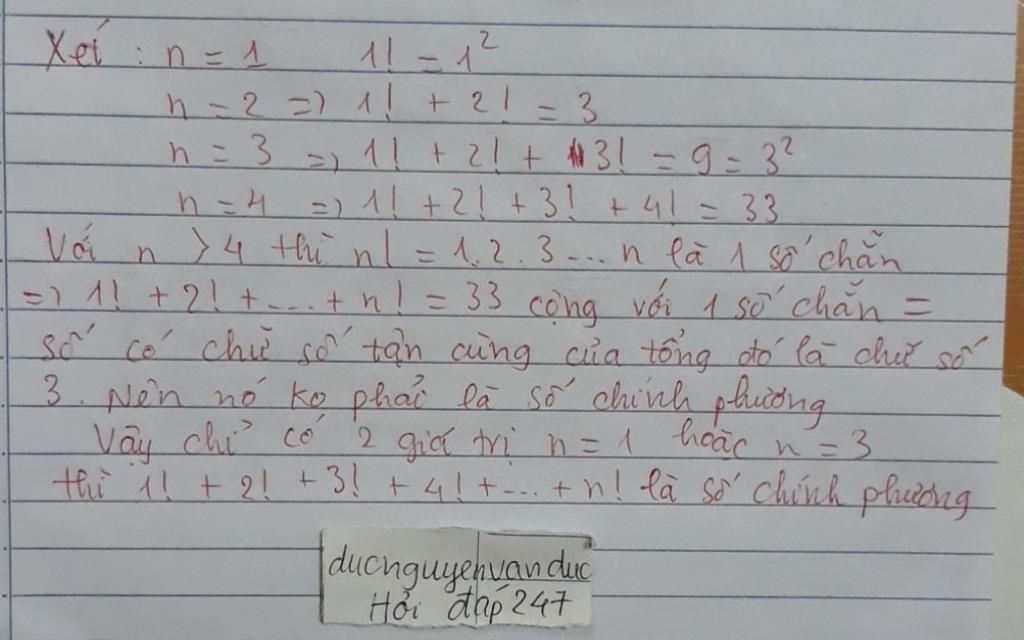 Xét : n = 1 1! = 1²
n = 2 => 1! + 2! = 3
n = 3 => 1! + 2! + 3! = 9 = 3²
n = 4 => 1! + 2! + 3! + 4! = 33
Với n > 4 thì n! = 1.2.3...n là 1 số chẵn
=> 1! + 2! + ... + n! = 33 cộng với 1 số chẵn =
số có chữ số tận cùng của tổng đó là chữ số
3. Nên nó ko phải là số chính phương
Vậy chỉ có 2 giá trị n = 1 hoặc n = 3
thì 1! + 2! + 3! + 4! + ... + n! là số chính phương
ducnguyenvanduc
Hỏi đáp 247